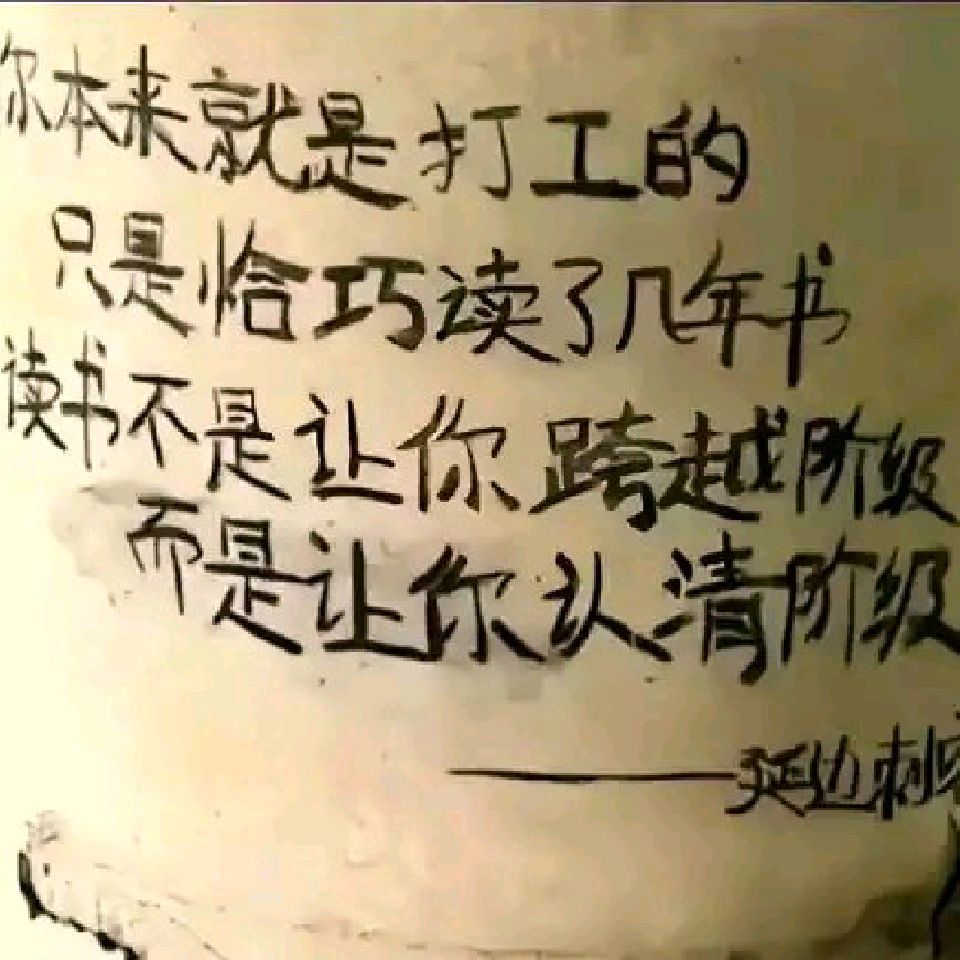 你本来就是打工的
只是恰巧读了几年书
读书不是让你跨越阶级
而是让你认清阶级
——延边刺客